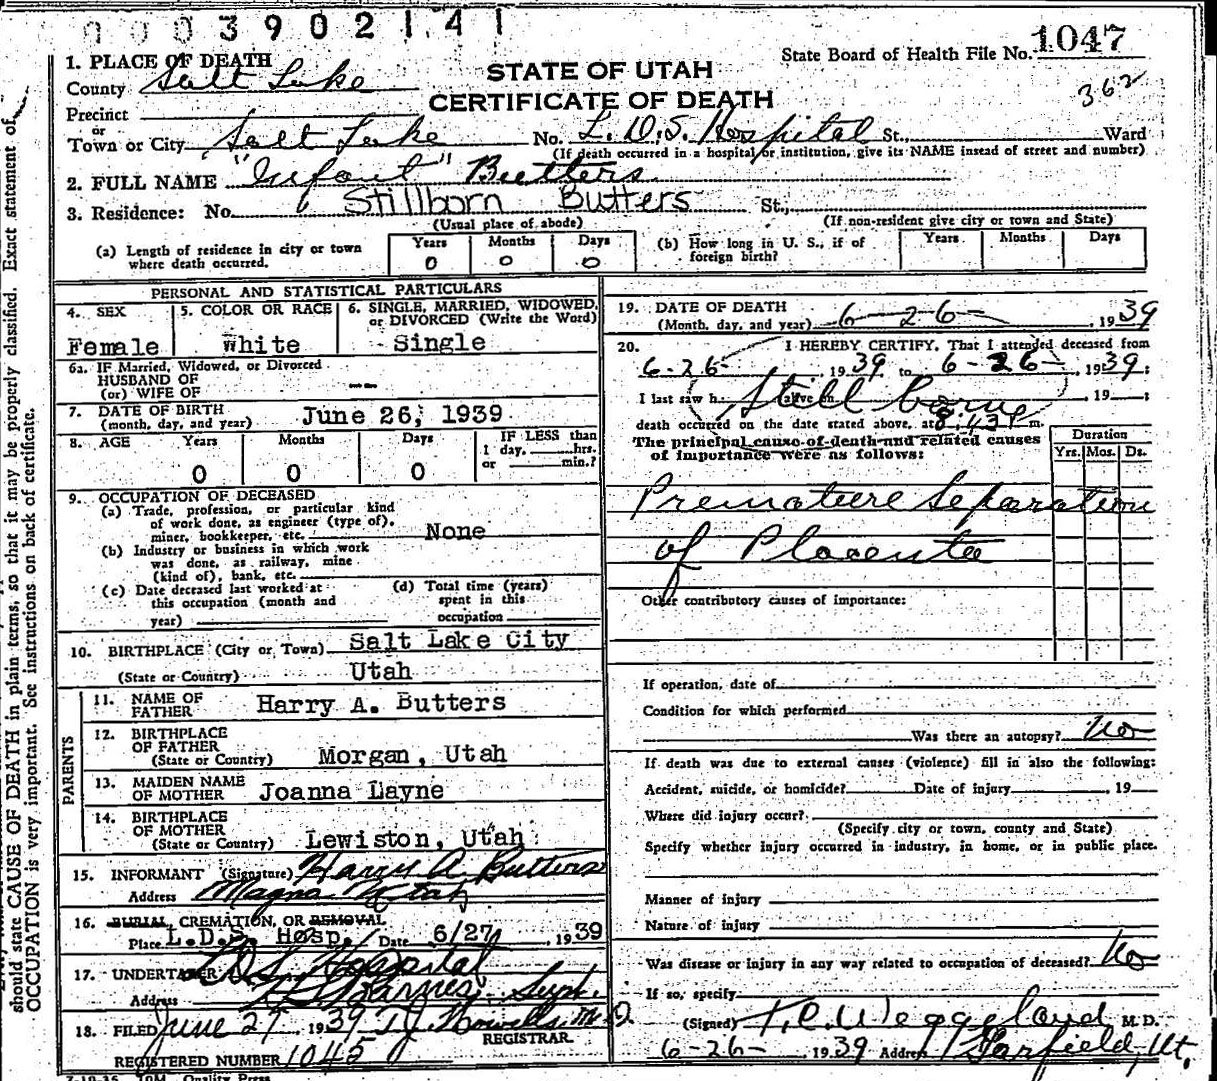 0003902141
State Board of Health File No. 1047
362
STATE OF UTAH
CERTIFICATE OF DEATH
1. PLACE OF DEATH
County Salt Lake
Precinct
or
Town or City Salt Lake No. L. D. S. Hospital St., Ward
(If death occurred in a hospital or institution, give its NAME insead of street and number)
2. FULL NAME "Infant" Butters
3. Residence: No. Stillborn Butters St.,
(Usual place of abode) (If non-resident give city or town and State)
(a) Length of residence in city or town where death occurred. Years 0 Months 0 Days 0
(b) How long in U. S., if of foreign birth? Years Months Days
PERSONAL AND STATISTICAL PARTICULARS
4. SEX Female
5. COLOR OR RACE White
6. SINGLE, MARRIED, WIDOWED, or DIVORCED (Write the Word) Single
6a. IF Married, Widowed, or Divorced
HUSBAND OF
(or) WIFE OF
7. DATE OF BIRTH (month, day, and year) June 26, 1939
8. AGE Years 0 Months 0 Days 0 IF LESS than 1 day, hrs. or min.?
9. OCCUPATION OF DECEASED
(a) Trade, profession, or particular kind
of work done, as engineer (type of),
miner, bookkeeper, etc. None
(b) Industry or business in which work
was done, as railway, mine
(kind of), bank, etc.
(c) Date deceased last worked at
this occupation (month and
year)
(d) Total time (years)
spent in this
occupation
10. BIRTHPLACE (City or Town) Salt Lake City
(State or Country) Utah
PARENTS
11. NAME OF FATHER Harry A. Butters
12. BIRTHPLACE OF FATHER (State or Country) Morgan, Utah
13. MAIDEN NAME OF MOTHER Joanna Layne
14. BIRTHPLACE OF MOTHER (State or Country) Lewiston, Utah
15. INFORMANT (Signature) Harry A. Butters
Address Magna Utah
16. BURIAL, CREMATION, OR REMOVAL
Place L.D.S. Hosp. Date 6/27, 1939
17. UNDERTAKER L.D.S. Hospital
Address Barnes Supt.
18. FILED June 27, 1939 T.J. Howells M.D.
REGISTRAR.
REGISTERED NUMBER 1045
7-10-36 10M Quality Press
19. DATE OF DEATH
(Month, day, and year) 6-26-, 1939
20. I HEREBY CERTIFY, That I attended deceased from
6-26-, 1939 to 6-26-, 1939;
I last saw h alive on Still borne, 19;
death occurred on the date stated above, at 8:43 P m.
The principal cause of death and related causes
of importance were as follows:
Duration
Yrs. Mos. Ds.
Premature Separation
of Placenta
Other contributory causes of importance:
If operation, date of
Condition for which performed
Was there an autopsy? No
If death was due to external causes (violence) fill in also the following:
Accident, suicide, or homicide? Date of injury, 19
Where did injury occur?
(Specify city or town, county and State)
Specify whether injury occurred in industry, in home, or in public place.
Manner of injury
Nature of injury
Was disease or injury in any way related to occupation of deceased? No
If so, specify
(Signed) T.C. Weggeland M. D.
6-26-, 1939 Address Garfield, Ut.
should state CAUSE OF DEATH in plain terms, so that it may be properly classified. Exact statement of
OCCUPATION is very important. See instructions on back of certificate.